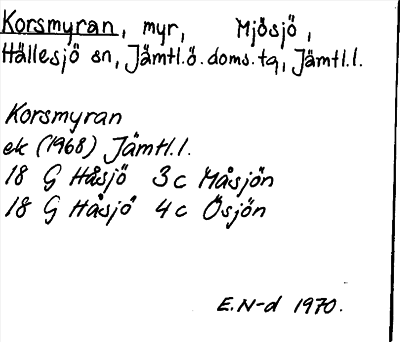 Korsmyran, myr, Mjösjö,
Hällesjö sn, Jämtl.ö.doms.tg, Jämtl.l.
Korsmyran
ek (1968) Jämtl.l.
18 G Håsjö 3c Måsjön
18 G Håsjö 4c Ösjön
E.N-d 1970.